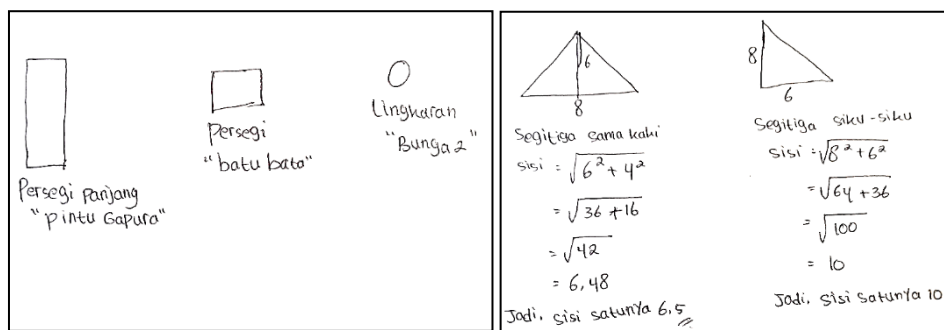 Persegi panjang
"pintu Gapura"
Persegi
"batu bata"
Lingkaran
"Bunga2"
6
8
Segitiga sama kaki
sisi = √6² + 4²
= √36 + 16
= √42
= 6,48
Jadi, sisi satunya 6,5
8
6
Segitiga siku-siku
sisi = √8² + 6²
= √64 + 36
= √100
= 10
Jadi, sisi satunya 10